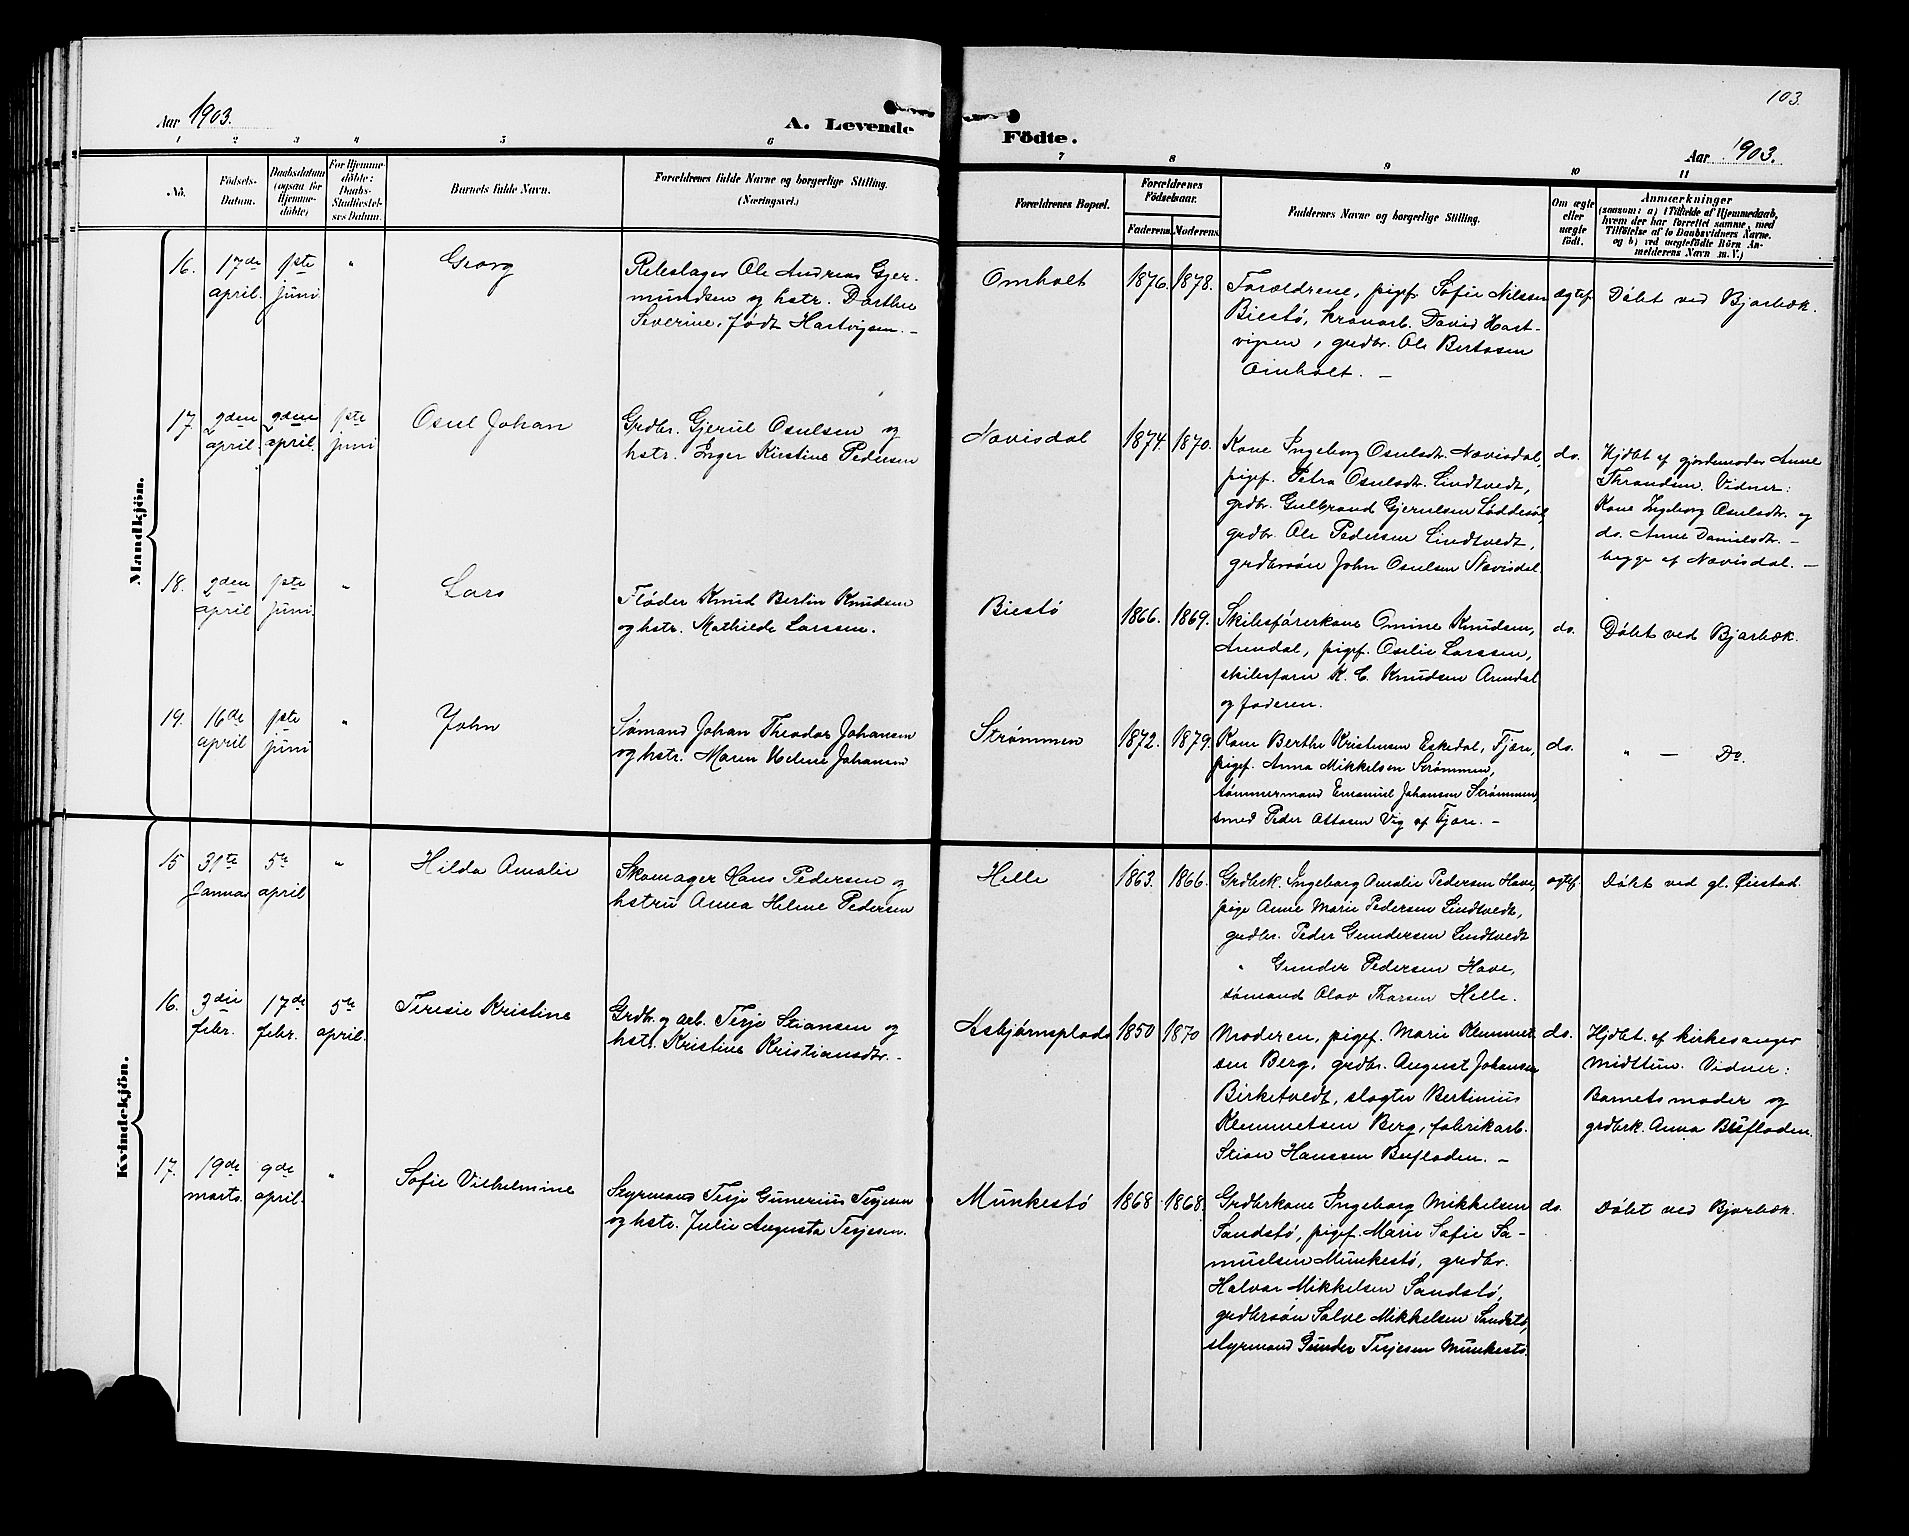 103.
Aar 1903.
A. Levende
Födte.
Aar 1903.
1 2 3 4 5 6 7 8 9 10 11
No.
Födsels-
Datum.
Daabsdatum
(ogsaa for
Hjemme-
döbte)
For Hjemme-
döbte:
Daabs-
Stadfæstel-
ses Datum.
Barnets fulde Navn.
Forældrenes fulde Navne og borgerlige Stilling.
(Næringsvei.)
Forældrenes Bopæl.
Forældrenes
Födselsaar.
Faderens. Moderens.
Faddernes Navne og borgerlige Stilling.
Om ægte
eller
uægte
födt.
Anmærkninger
(saasom: a) i Tilfælde af Hjemmedaab,
hvem der har forrettet samme, med
Tilföielse af to Daabsvidners Navne.
og b) ved uægtefödte Börn An-
melderens Navn m. V.)
Mandkjön.
16.
17de
april.
1ste
juni.
"
Georg
Rebslager Ole Andreas Gjer-
mundsen og hstr. Dorthea
Severine, født Hartvigsen. -
Omholt
1876. 1878.
Forældrene, pigef. Sofie Nilssen
Biestø, kranarb. David Hart-
vigsen, grdbr. Ole Bertosen
Omholt. -
ægtef.
Døbt ved Bjorbæk.
17.
2den
april.
2den
april.
1ste
juni
Osul Johan
Grdbr. Gjerul Osulsen og
hstr. Inger Kirstine Pedersen
Nævisdal
1874. 1870.
Kone Ingeborg Osulsdtr. Nævisdal,
pigef. Petra Osulsdtr. Lindtvedt,
grdbr. Gulbrand Gjerulsen Løddesøl,
grdbr. Ole Pedersen Lindtvedt,
grdbrsøn John Osulsen Nævisdal.
do.
Hjdbt af gjordemoder Anne
Thrandsen. Vidner:
Kone Ingeborg Osulsdtr. og
do. Anne Danielsdtr. -
begge af Nævisdal. -
18.
2den
april
1ste
juni.
"
Lars
Fløder Knud Bertin Knudsen
og hstr. Mathilde Larssen.
Biestø
1866. 1869.
Skibsførerkone Omine Knudsen,
Arendal, pigef. Oselie Larssen,
skibsførn K. C. Knudsen Arendal
og faderen.
do.
Døbt ved Bjorbæk.
19.
16de
april
1ste
juni
"
John
Sømand Johan Theodor Johansen
og hstr. Maren Helene Johansen
Strømmen
1872. 1879.
Kone Berthe Kristensen Eskedal, Fjære,
pigef. Anna Mikkelsen Strømmen,
tømmermand Emanuel Johansen Strømmen,
smed Peder Ottosen Vig af Fjære. -
do.
" — Do.
Kvindekjön.
15
31te
Januar
5te
april
"
Hilda Amalie
Skomager Hans Pedersen og
hstru Anna Helene Pedersen
Helle
1863. 1866.
Grdbrk. Ingeborg Amalie Pedersen Have,
pige Anne Marie Pedersen Lindtvedt,
grdbr. Peder Gundersen Lindtvedt
" Gunder Pedersen Have,
sømand Olav Thorsen Helle.
ægtef.
Døbt ved gl. Øiestad.
16.
3die
febr.
17de
febr.
5te
april.
Teresie Kristine
Grdbr. og arb. Terje Stiansen og
hstr. Kristine Kristiansdtr. -
Asbjørnsplads
1850 1870
Moderen, pigef. Marie Klemmet-
sen Berg, grdbr. August Johansen
Birketvedt, slagter Bertinius
Klemmetsen Berg, fabrikarb.
Stian Hanssen Bufloden. -
do.
Hjdbt. af kirkesanger
Midttun. Vidner:
Barnets moder og
grdbrk. Anna Bufloden.
17.
19de
marts.
9de
april.
"
Sofie Vilhelmine
Styrmand Terje Gunerius Terjesen
og hstr. Julie Augusta Terjesen.
Munkestø
1868 1868.
Grdbrkone Ingeborg Mikkelsen
Sandstø, pigef. Marie Sofie Sa-
muelsen Munkestø, grdbr.
Halvor Mikkelsen Sandstø,
grdbrsøn Salve Mikkelsen Sandstø,
styrmand Gunder Terjesen Munkestø.
do.
Døbt ved Bjorbæk.